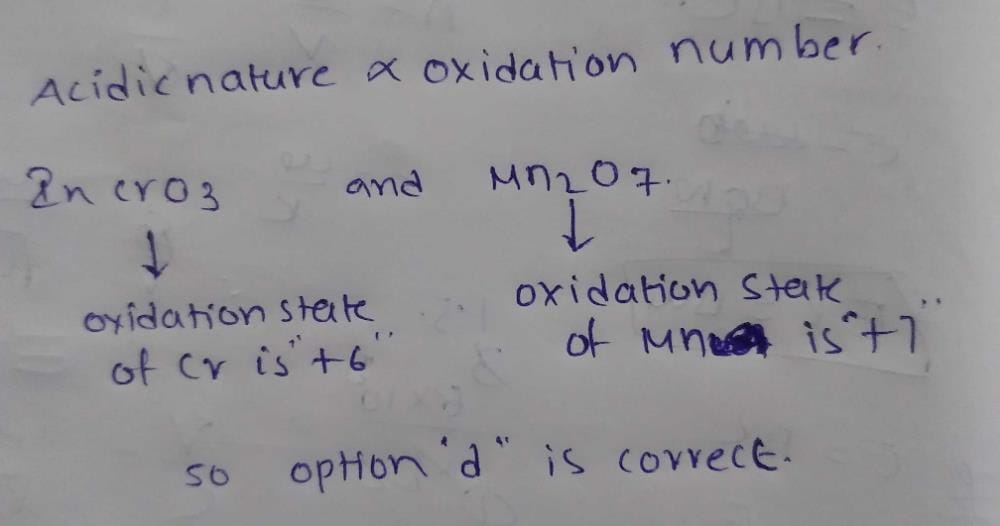 Acidic nature ∝ oxidation number.
In crO3 and Mn2O7.
↓ ↓
oxidation state oxidation state
of Cr is "+6" of Mn is "+7"
so option "d" is correct.